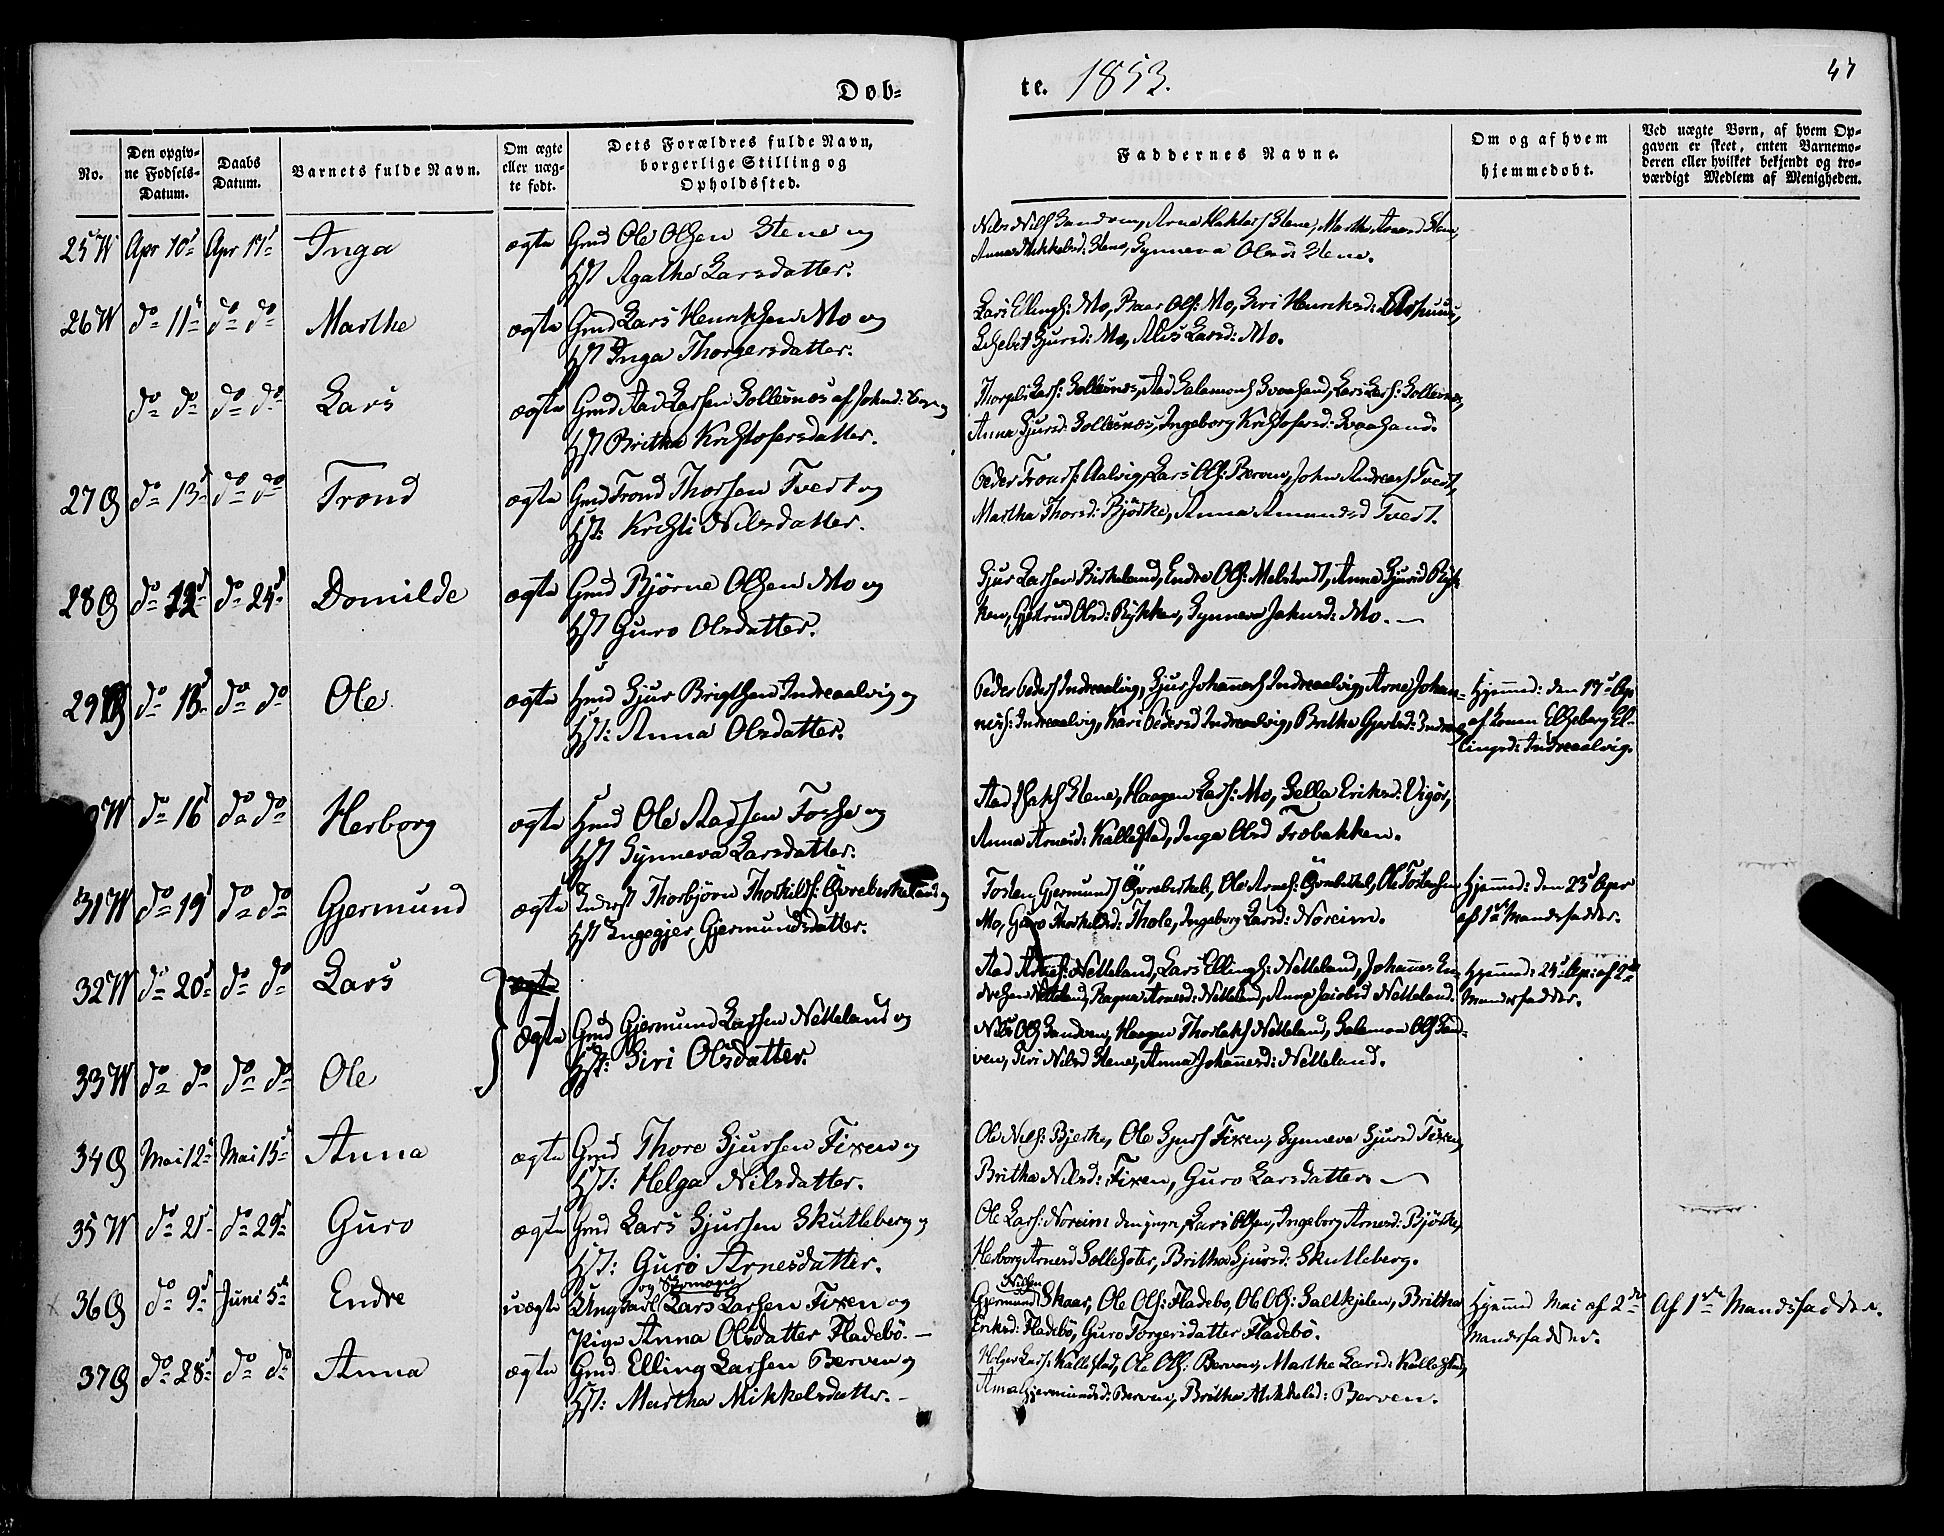 Døb-
te. 1853.
47
No.
Den opgiv-
ne Fødsels-
Datum.
Daabs
Datum.
Barnets fulde Navn.
Om ægte
eller uæg-
te født.
Dets Forældres fulde Navn,
borgerlige Stilling og
Opholdssted.
Faddernes Navne.
Om og af hvem
hjemmedøbt.
Ved uægte Børn, af hvem Op-
gaven er skeet, enten Barnemo-
deren eller hvilket bekjendt og tro-
værdigt Medlem af Menigheden.
25 W Apr 10 Apr 17 Inga ægte Gmd Ole Olsen Stene og
Hst Agatha Larsdatter.
Nils Nils Sandven, Arne Stene, Martha Stene,
Anna Mikkelsd: Stene, Synneva Olsd: Stene.
26 W do 11 do do Marthe ægte Gmd Lars Henriksen Mo og
Hst Inga Thorgersdatter.
Lars Ellings: Mo, Ols: Mo, Siri Henriksd:
Sjursd: Mo, Larsd: Mo.
do do do do Lars ægte Gmd Aad Larsen Sollesnes af Johnd:
Hst Britha Kristofersdatter.
Lars: Sollesnes, Aad Salamons Svaasand, Lars Lars: Sollesnes,
Anna Sjursd: Sollesnes, Ingeborg Kristofersd: Svaasand.
27 Ø do 13 do do Trond ægte Gmd Trond Thorsen Tvedt og
Hst: Kristi Nilsdatter.
Peder Tronds: Aalvig, Lars Ols: Berven, John Andreas Tvedt,
Martha Thorsd: Björke, Anna Amundsd Tvedt.
28 Ø do 12 do 24 Domilde ægte Gmd Bjørne Olsen Mo og
Hst Guro Olsdatter.
Sjur Larsen Birkeland, Endre Ols: Melstvedt, Anna Sjursd Ryk-
ken, Gjetrud Olsd: Rykken, Synneva Johnsd: Mo. —
29 Ø do 13 do do Ole ægte Hmd Sjur Brigtsen Indreaalvig og
Hst: Anna Olsdatter.
Peder Peders Indreaalvig, Sjur Johannes Indreaalvig, Arne Johan-
nes: Indreaalvig, Kari Pedersd Indreaalvig, Britha Gjertsd:
Hjemmed: den 17 Apr
af Konen Elseberg El-
lingsd: Indreaalvig.
W do 16 do do Herborg ægte Hmd Ole Aadsen Fosse og
Hst Synneva Larsdatter.
Aad Stene, Haagen Lars: Mo, Sella Eriksd: Vigør,
Anna Arnesd: Kallestad, Inga Olsd Træbakken.
31 W do 19 do do Gjermund ægte Inderst Thorbjørn Thorkilds: Øvrebirkeland og
Hst Ingegjer Gjermundsdatter.
Tosten Gjermunds Øvrebirkel:, Ole Arnes: Øvrebirkel, Ole Tostensen
Mo, Guro Thorkildsd: Thole, Ingeborg Larsd: Noreim.
Hjemmed: den 23 Apr
af 1ste Mandsfadder.
32 W do 20 do do Lars ægte
Aad Arnes: Netteland, Lars Ellings: Netteland, Johannes En-
dresen Netteland, Ragna Arnesd: Netteland, Anna Jacobsd Netteland.
Hjemmed: 24 Ap: af 2den
Mandsfadder.
ægte Gmd Gjermund Larsen Netteland og
Hst: Siri Olsdatter.
33 W do do do do Ole
Nils Ols Sandven, Haagen Netteland, Salamon Ols San-
ven, Siri Nilsd Stene, Anna Johannesd: Netteland.
34 Ø Mai 12 Mai 15 Anna ægte Gmd Thore Sjursen Fixen og
Hst: Helga Nilsdatter.
Ole Nels: Bjerke, Ole Sjurs Fixen, Synneva Sjursd Fixen,
Britha Nilsd: Fixen, Guro Larsdatter —
35 W do 21 do 29 Guro ægte Gmd Lars Sjursen Skutleberg og
Hst: Guro Arnesdatter.
Ole Lars: Noreim den yngre, Lars Olsen, Ingeborg Arnesd: Björke,
Herborg Arnesd Solleseter, Britha Sjursd: Skutleberg.
36 Ø do 9 Juni 5 Endre uægte Ungkarl og Skomager Lars Larsen Fixen og
Pige Anna Olsdatter Fladebö. —
Gjermund Skaar, Ole Ols: Fladebo, Ole Ols: Saltkjelen, Britha
Eriksd: Fladebö, Guro Torgersdatter Fladebö.
Hjemmed Mai af 2den
Mandsfadder.
Af 1ste Mandsfadder.
37 Ø do 28 do do Anna ægte Gmd Elling Larsen Berven og
Hst: Martha Mikkelsdatter. —
Holger Lars: Kallestad, Ole Ols: Berven, Martha Larsd: Kallestad,
Anna Gjermundsd: Berven, Britha Mikkelsd: Berven.